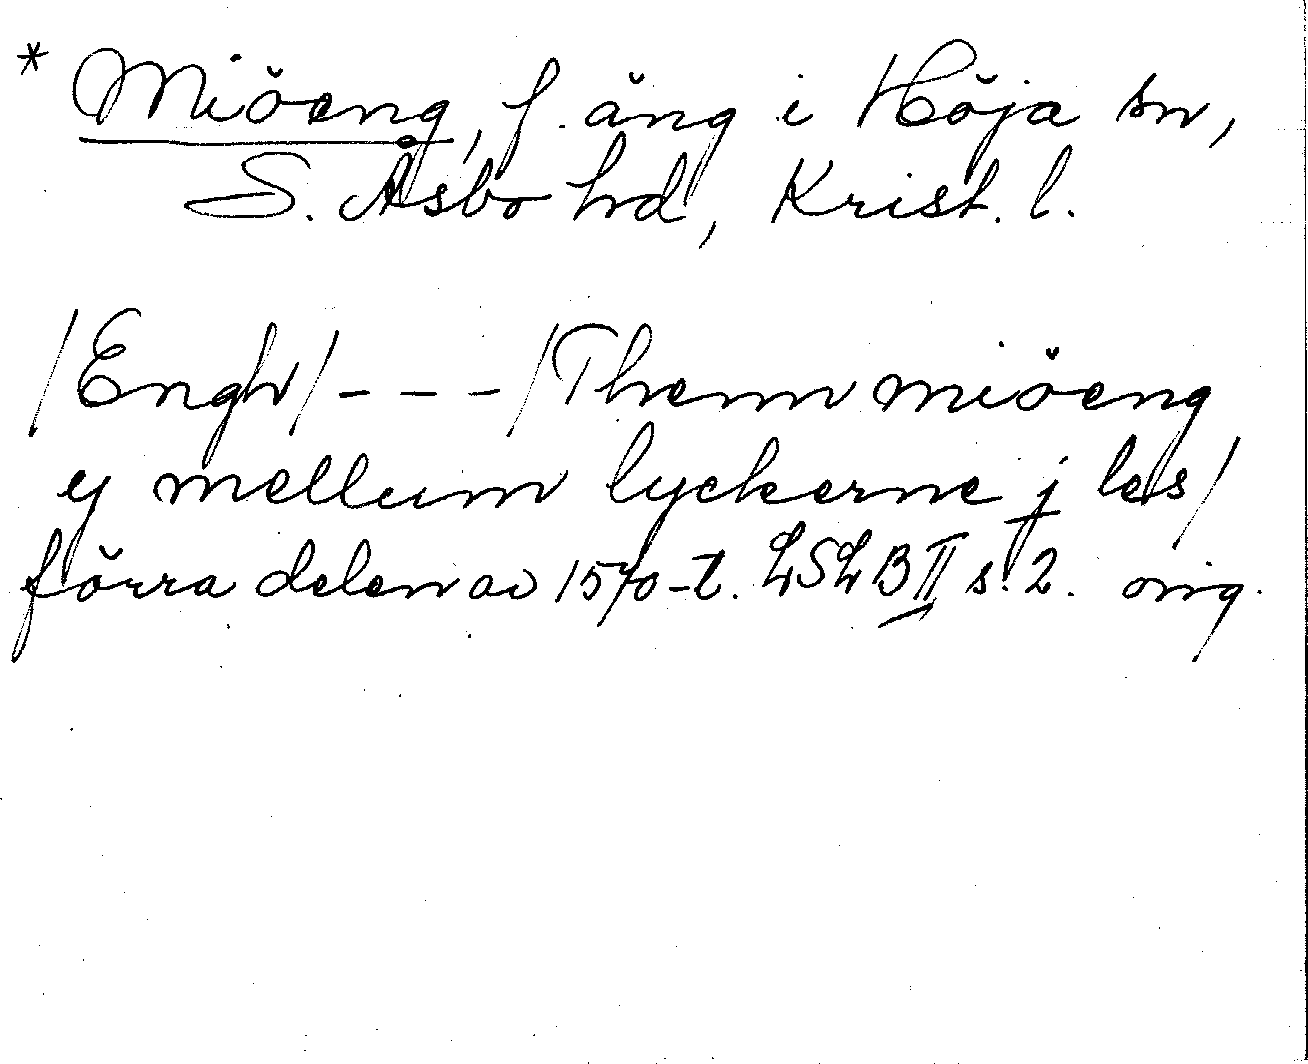 * Miöeng, f. äng i Höja sn,
S. Åsbo hd, Krist. l.
/Engh/ - - - /Thenn miöeng
ey mellum lyckerne j les/
förra delen av 1570-t. LSLB II s. 2. orig.